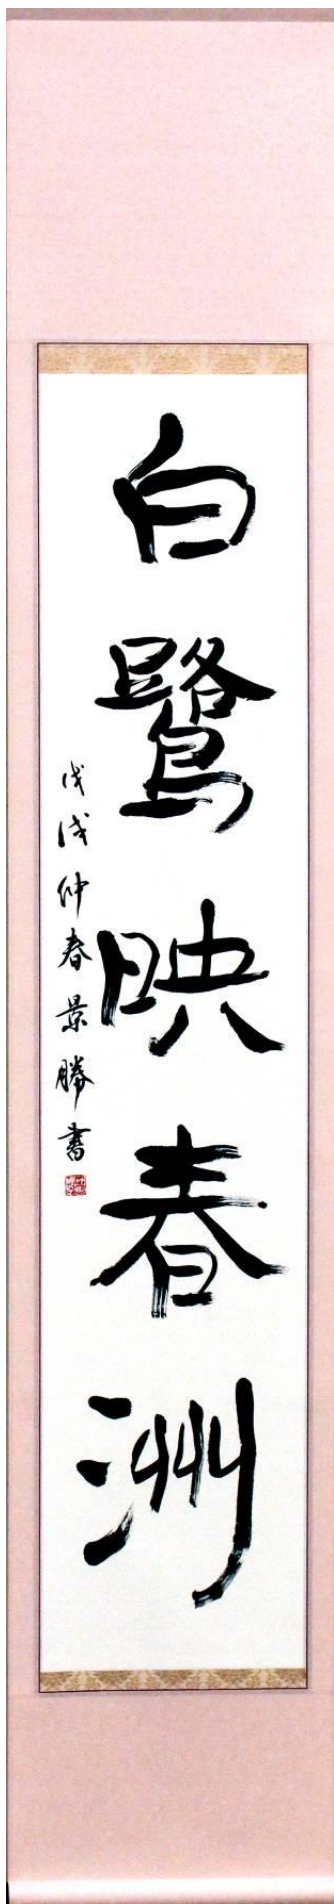 白鷺映春洲
戊戌仲春景勝書